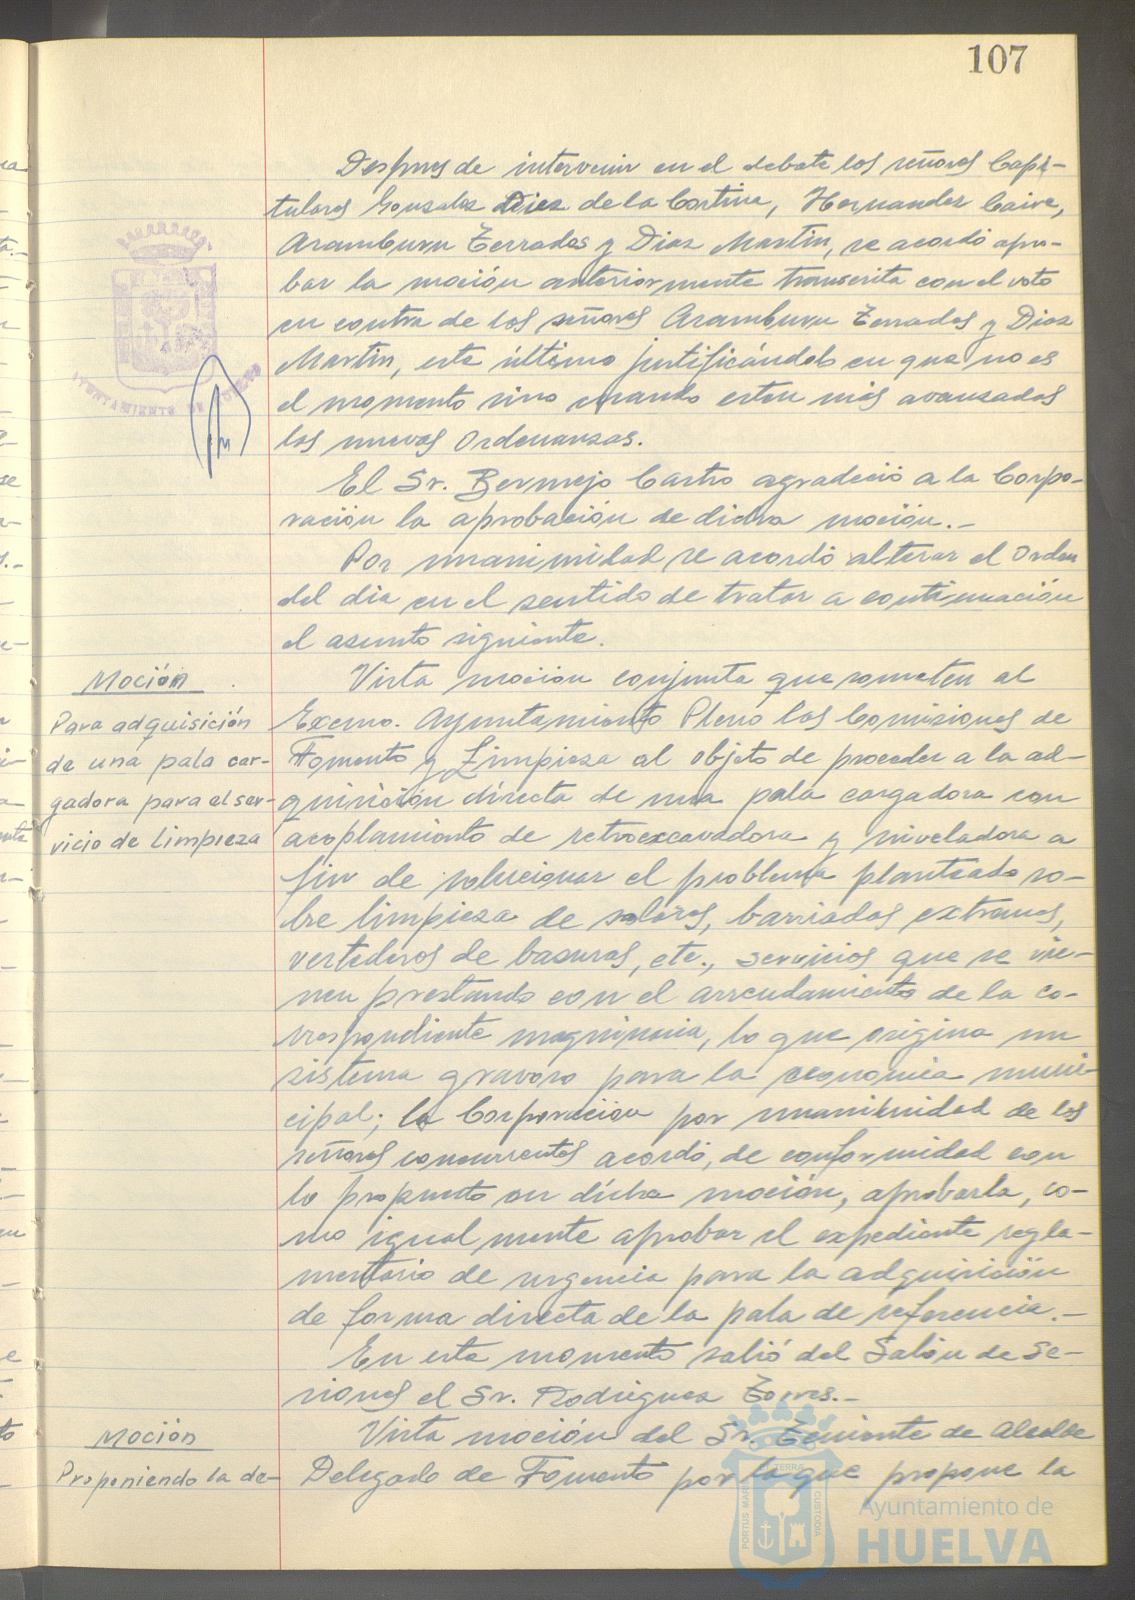 107
Despues de intervenir en el debate los señores Capi-
tulares Gonzalez Diez de la Cortina, Hernandez Caire,
Aramburu Terrades y Diaz Martin, se acordó apro-
bar la moción anteriormente transcrita con el voto
en contra de los señores Aramburu Terrades y Diaz
Martin, este último justificándolo en que no es
el momento sino cuando esten más avanzados
las nuevas Ordenanzas.
El Sr. Bermejo Castro agradeció a la Corpo-
ración la aprobación de dicha moción.-
Por unanimidad se acordó alterar el Orden
del dia en el sentido de tratar a continuación
el asunto siguiente.
Moción
Para adquisición
de una pala car-
gadora para el ser-
vicio de limpieza
Vista moción conjunta que someten al
Excmo. Ayuntamiento Pleno las Comisiones de
Fomento y Limpieza al objeto de proceder a la ad-
quisición directa de una pala cargadora con
acoplamiento de retroexcavadora y niveladora a
fin de solucionar el problema planteado so-
bre limpieza de solares, barriadas extremas,
vertederos de basuras, etc., servicios que se vie-
nen prestando con el arrendamiento de la co-
rrespondiente maquinaria, lo que origina un
sistema gravoso para la economia muni-
cipal; la Corporación por unanimidad de los
señores concurrentes acordó, de conformidad con
lo propuesto en dicha moción, aprobarla, co-
mo igualmente aprobar el expediente regla-
mentario de urgencia para la adquisición
de forma directa de la pala de referencia.-
En este momento salió del Salón de Se-
siones el Sr. Rodriguez Torres.-
Moción
Proponiendo la de-
Vista moción del Sr. Teniente de Alcalde
Delegado de Fomento por la que propone la
AYUNTAMIENTO DE
PORTUS MARIS
TERRAE
CUSTODIA
Ayuntamiento de
HUELVA